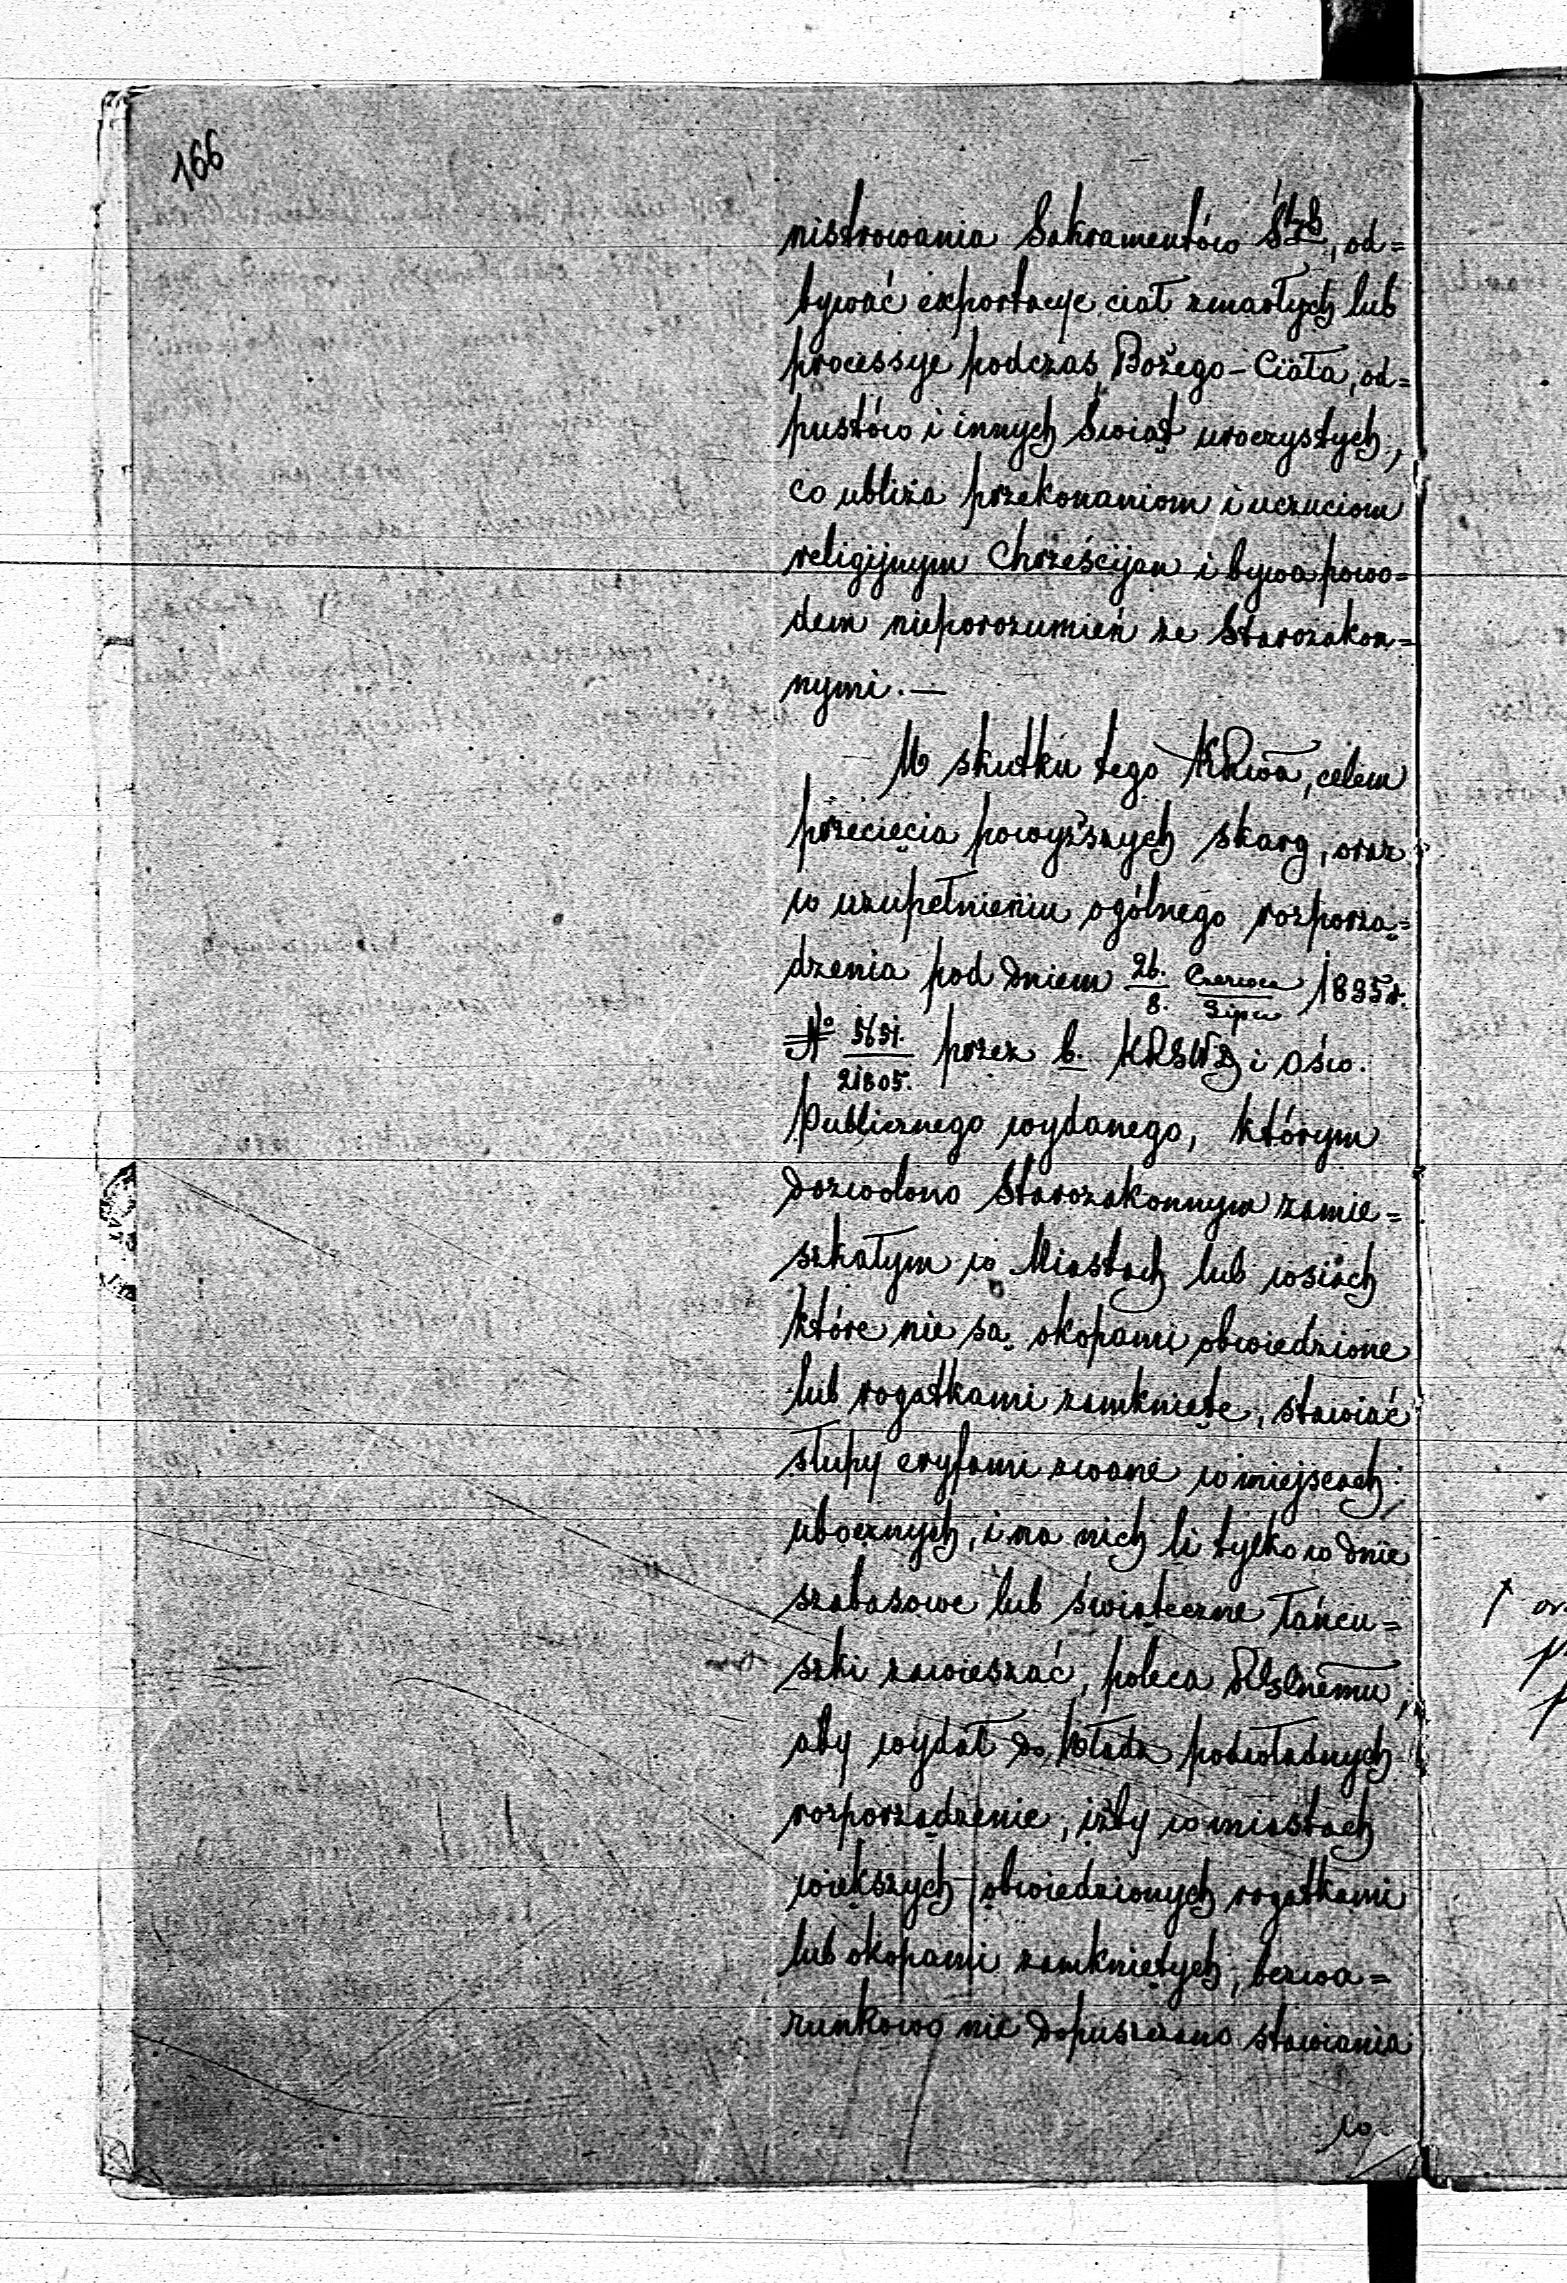 166
nistrowania Sakramentów Śtych, od=
bywać exportacye ciał zmarłych lub
processye podczas Bożego-Ciała, od=
pustów i innych Świąt uroczystych,
co ubliża przekonaniom i uczuciom
religijnym Chrześcijan i bywa powo=
dem nieporozumień ze Starozakon=
nymi. —
W skutku tego KRwa, celem
przecięcia powyższych skarg, oraz
w uzupełnieniu ogólnego rozporzą=
dzenia pod dniem 26. Czerwca / 8. Lipca 1835 r.
№ 5651. / 21805. przez b. KRSWD i Ośw.
Publicznego wydanego, którym
dozwolono Starozakonnym zamie=
szkałym w Miastach lub wsiach
które nie są okopami obwiedzione
lub rogatkami zamknięte, stawiać
słupy eryfami zwane w miejscach
ubocznych, i na nich li tylko w dnie
szabasowe lub świąteczne łańcu=
szki zawieszać, poleca
aby wydał do Władz podwładnych
rozporządzenie, iżby w miastach
większych obwiedzionych rogatkami
lub okopami zamkniętych, bezwa=
runkowo nie dopuszczano stawiania
w